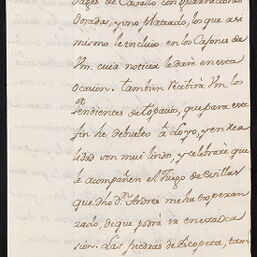 Jages de Cavallo con guarniciones
Doradas, y uno plateado, los que asi
mismo le incluio en los Cajones de
Vm. cuia noticia le daré en esta
Ocasion. tambien recibirá Vm. los
pendientes de topacio, que para este
fin he debuelto à dho. y en rea
lidad ven mui lindo, y celebraré que
le acompañen el Juego de evillas
que dho Dn. Andres me ha esperan
zado, de que podrá ir en esta Oca
sion. Las piedras de Picopeca, tam